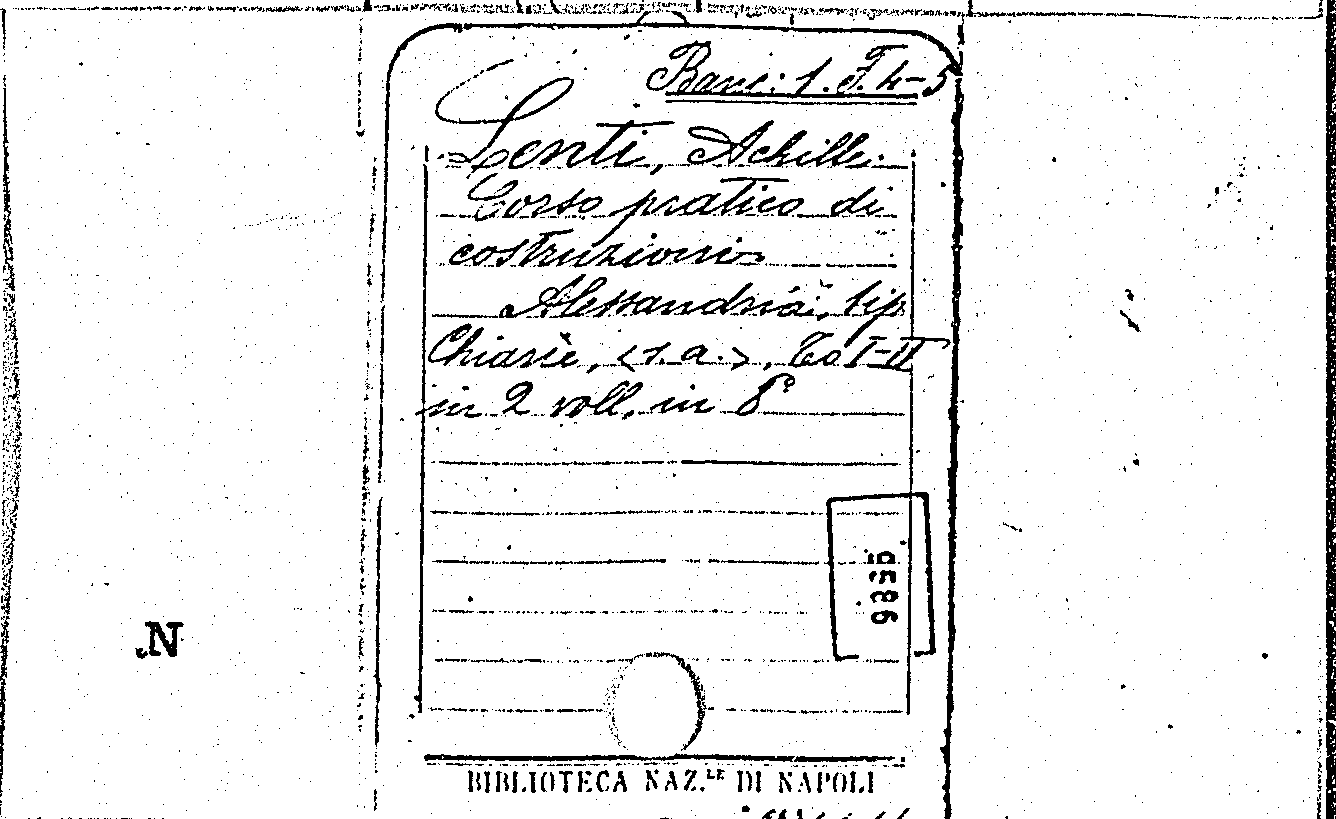 Banc: 1. F. 4-5
Lenti, Achille.
Corso pratico di
costruzioni
Alessandria, tip
Chiariè, <s.a.>, To I-II
in 2 voll, in 8°
9586
N
BIBLIOTECA NAZ.LE DI NAPOLI